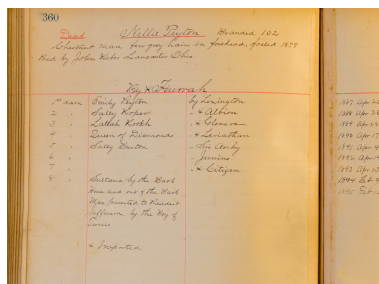 360
Dead Nellie Peyton Branded 102
Chestnut mare, few grey hairs in forehead, foaled 1879
Bred by John Lancaster Ohio
By Hurrah
1st dam Emily Peyton by Lexington
2 " Sally Roper " Albion
3 " Lallah Rookh " Glencoe
4 " Queen of Diamonds " Leviathan
5 " Sally " Sir Archy
6 " " Junius
7 " " Citizen
8 " Sultana by the Barb
Horse and out of the Barb
Mare presented to President
Jefferson by the Bey of
Tunis
Imported
1887 Apr
1888 Apr
1889 Apr
1890 Apr
1891 Apr
1892 Apr
1893 Apr
1894 Feb
1895 Feb